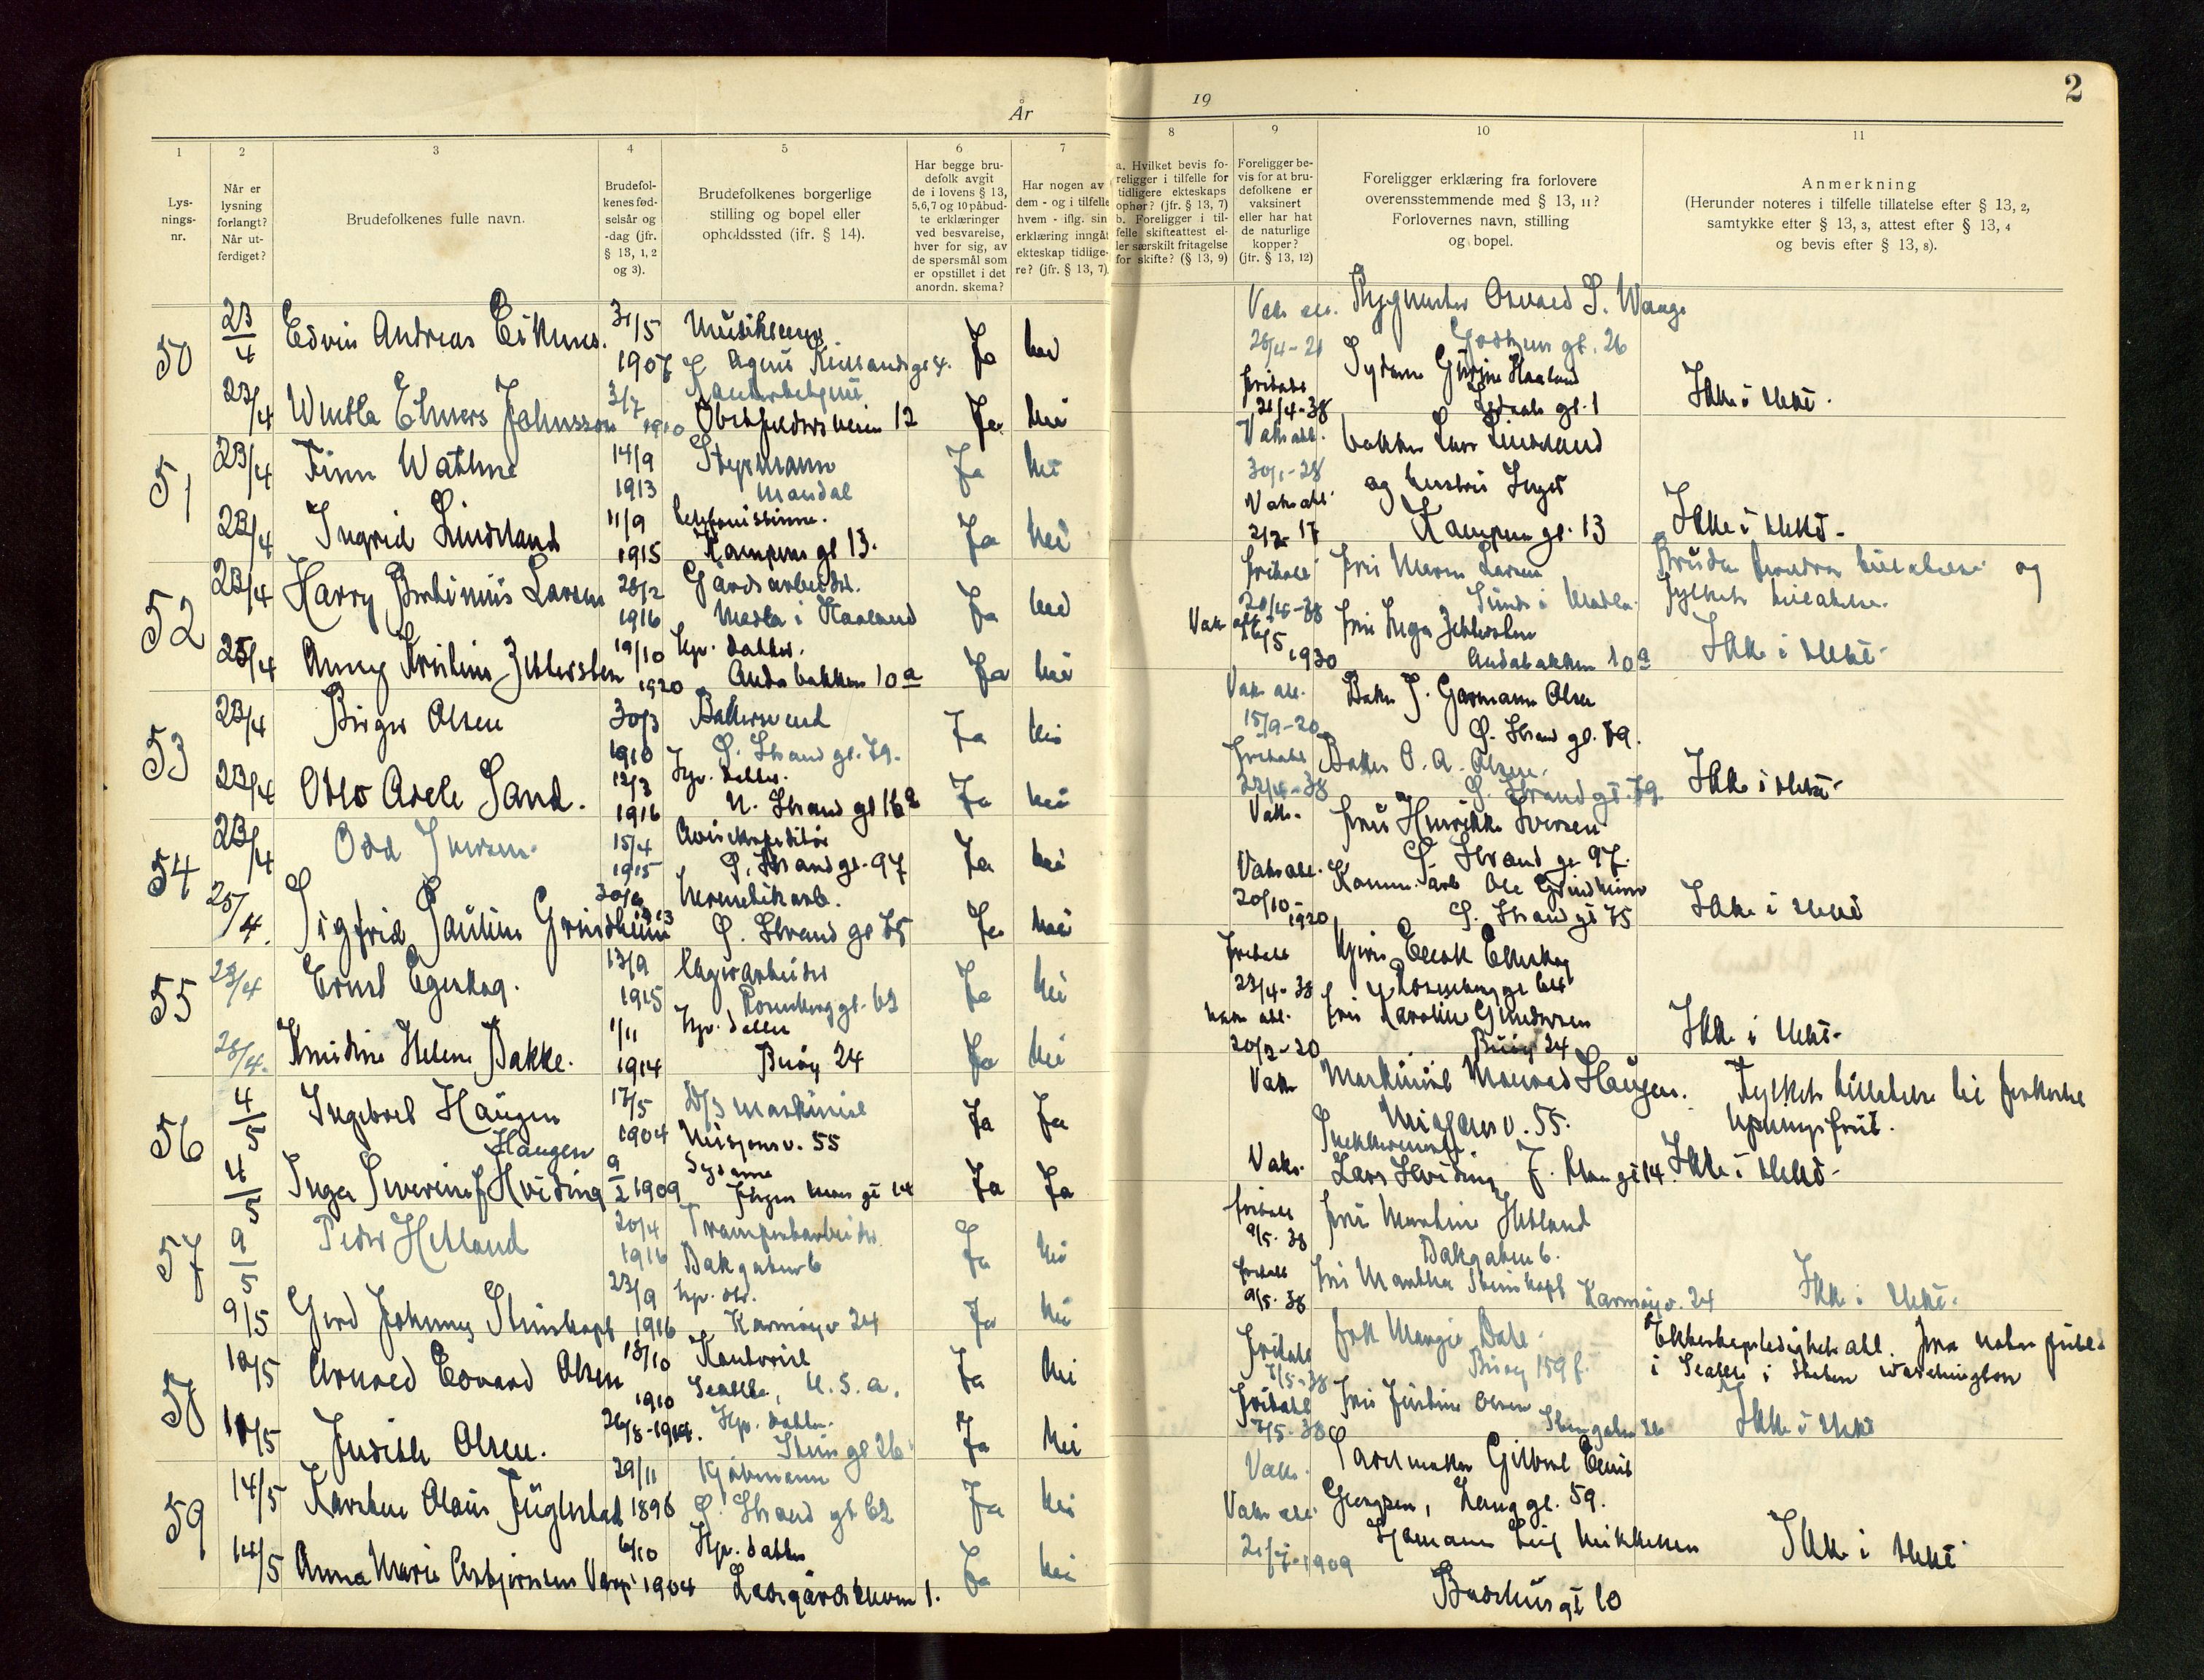 År
19
2
1
2
3
4
5
6
7
8
9
10
11
Lys-
nings-
nr.
Når er
lysning
forlangt?
Når ut-
ferdiget?
Brudefolkenes fulle navn.
Brudefol-
kenes fød-
selsår og
-dag (jfr.
§ 13, 1, 2
og 3).
Brudefolkenes borgerlige
stilling og bopel eller
opholdssted (jfr. § 14).
Har begge bru-
defolk avgit
de i lovens § 13,
5,6,7 og 10 påbud-
te erklæringer
ved besvarelse,
hver for sig, av
de spørsmål som
er opstillet i det
anordn. skema?
Har nogen av
dem - og i tilfelle
hvem - iflg. sin
erklæring inngåt
ekteskap tidlige-
re? (jfr. § 13, 7).
a. Hvilket bevis fo-
religger i tilfelle for
tidligere ekteskaps
ophør? (jfr. § 13, 7)
b. Foreligger i til-
felle skifteattest el-
ler særskilt fritagelse
for skifte? (§ 13, 9)
Foreligger be-
vis for at bru-
defolkene er
vaksinert
eller har hat
de naturlige
kopper?
(jfr. § 13, 12)
Foreligger erklæring fra forlovere
overensstemmende med § 13, 11?
Forlovernes navn, stilling
og bopel.
Anmerkning
(Herunder noteres i tilfelle tillatelse efter § 13, 2,
samtykke efter § 13, 3, attest efter § 13, 4
og bevis efter § 13, 8).
50
23/4 Edvin Andreas 31/5 1907 Ja nei
Vaks att. 28/4-21 Osvald S. Waage
23/4 Johnsson 3/7 1910 12 Ja nei
fritatt 21/4-38 Haaland gt. 1 Ikke i slekt.
51
23/4 Finn Wathne 14/9 1913 Styrmann Mandal Ja nei
Vaks att. 30/1-28 Lars Lindland og hustru Inga
23/4 Ingrid Lindland 11/9 1915 Telefonistinne. Kampen gt 13. Ja nei
Vaks att. 2/2-17 Kampen gt. 13 Ikke i slekt.
52
23/4 Harry Larsen 28/2 1916 Gårdsarbeider. Madla i Haaland Ja nei
fritatt 20/4-38 fru Maren Larsen Sunde i Madla. og
fylkets tillatelse.
25/4 Anny Kristine 19/10 1920 Hp. datter. Andabakken 10a Ja nei
Vaks att. 16/5 1930 fru Inga Andabakken 10a Ikke i slekt.
53
23/4 Birger Olsen 30/3 1910 Bakersvend Ø. Strand gt. 79. Ja nei
Vaks att. 15/9-20 Baker J. Garmann Olsen Ø. Strand gt. 79.
23/4 Sand. 12/3 1916 Hp. datter. N. Strand gt 16a Ja nei
Fritatt 22/4-38 Baker O. A. Olsen. Ø. Strand gt. 79. Ikke i slekt.
54
23/4 Odd Iversen. 15/4 1915 Avisekspeditør Ø. Strand gt. 97 Ja nei
Vaks. fru Henrikke Iversen Ø. Strand gt 97.
25/4. Sigfrid Pauline Grindheim 1913 Hermetikarb. Ø. Strand gt 75 Ja nei
Vaks att. 20/10-1920 Komm. arb Ole Grindheim Ø. Strand gt 75 Ikke i slekt
55
23/4 Ernst Egeskog. 13/9 1915 Lagerarbeider Rosenberg gt. 62 Ja nei
fritatt 23/4-38 Rosenberg gt
28/4. Knudine Helene Bakke. 1/11 1914 Hp. datter Buøy 24 Ja nei
Vaks att. 20/2-20 fru Karoline Gundersen Buøy 24 Ikke i slekt.
56
4/5 Ingebret Haugen 17/5 1904 D/S maskinist Misjonsv. 55 Ja Ja
Vaks Maskinist Haugen. Misjonsv. 55. Fylkets tillatelse til
4/5 Inga Severine f Hviding Haugen 9/2 1909 Sydame Jørgen Moes gt 14 Ja Ja
Vaks. Lars Hviding J. Moes gt 14. Ikke i slekt.
57
9/5 Peder Helland 20/4 1916 Transportarbeider Bakgaten 6 Ja nei
fritatt 9/5. 38 fru Martine Helland Bakgaten 6.
9/5 Gerd Johanne Steinkopf 23/9 1916 Hp. dtr. Karmøyv 24 Ja nei
fritatt 9/5. 38 fru Martha Steinkopf Karmøyv. 24 Ikke i slekt.
58
10/5 Arnold Edvard Olsen 18/10 1910 Kontorist Seattle, U.S.A. Ja nei
Fritatt 7/5-38 frk Margit Dahl. Buøy 159 f. Ekteskapsledighets att. fra
i Seattle i Staten Washington
10/5 Judith Olsen. 26/8-1914. Hp. datter. Stein gt 26 Ja nei
Fritatt 7/5-38 fru Justine Olsen Steingaten 26 Ikke i slekt
59
14/5 Karsten Olaus Fuglestad 29/11 1896 Kjøbmann Ø. Strand gt 62 Ja nei
Vaks. Gilbert Georgsen, Langgt. 59.
14/5 Anna Marie Asbjørnsen 6/10 1904 Hp. datter Ladegårdsveien 1. Ja nei
Vaks att 21/7-1909 Leif Mikkelsen Badehusgt 10 Ikke i slekt